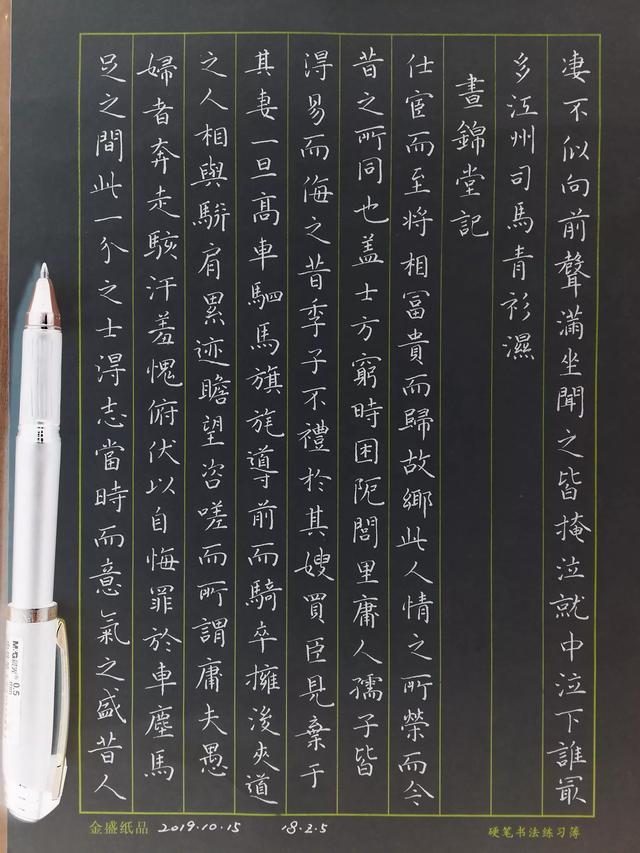 凄不似向前聲滿坐聞之皆掩泣就中泣下誰最
多江州司馬青衫濕
晝錦堂記
仕宦而至將相冨貴而歸故鄉此人情之所榮而今
昔之所同也盖士方窮時困阨閭里庸人孺子皆
得易而侮之昔季子不禮於其嫂買臣見棄于
其妻一旦高車駟馬旗旄導前而騎卒擁後夾道
之人相與駢肩累迹瞻望咨嗟而所謂庸夫愚
婦者奔走駭汗羞愧俯伏以自悔罪於車塵馬
足之間此一介之士得志當時而意氣之盛昔人
金盛纸品 2019.10.15 18.2.5 硬笔书法练习薄
M&G晨光 0.5
mm